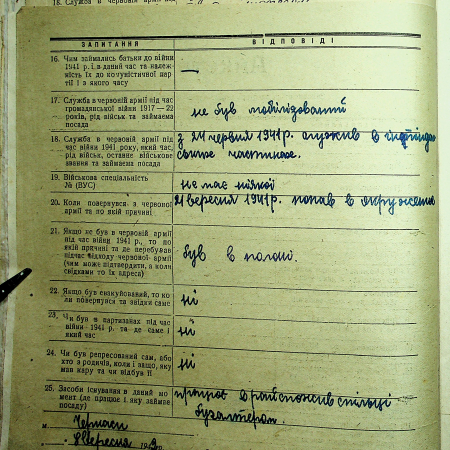 18. Служба в червоній армії
ЗАПИТАННЯ ВІДПОВІДІ
16. Чим займались батьки до війни
1941 р. і в даний час та належ-
ність їх до комуністичної пар-
тії і з якого часу
—
17. Служба в червоній армії під час
громадянської війни 1917—22
років, рід військ та займаєма
посада
не був мобілізований
18. Служба в червоній армії під
час війни 1941 року, який час,
рід військ, останнє військове
звання та займаєма посада
з 24 червня 1941 р. служив в
частинах.
19. Військова спеціальність
№ (ВУС)
не має ніякої
20. Коли повернувся з червоної
армії та по якій причині
21 вересня 1941 р. попав в окруженн
21. Якщо не був в червоній армії
під час війни 1941 р., то по
якій причині та де перебував
підчас відходу червоної армії
(чим може підтвердити, а коли
свідками то їх адреса)
був в полоні.
22. Якщо був евакуйований, то ко-
ли повернувся та звідки саме
ні
23. Чи був в партизанах під час
війни 1941 р. та де саме і
який час
ні
24. Чи був репресований сам, або
хто з родичів, коли і защо, яку
мав кару та чи відбув її
ні
25. Засоби існування в даний мо-
мент (де працює і яку займає
посаду)
працює в райспоживспілці
бухгалтером.
м Черкаси
вересня 194 р.